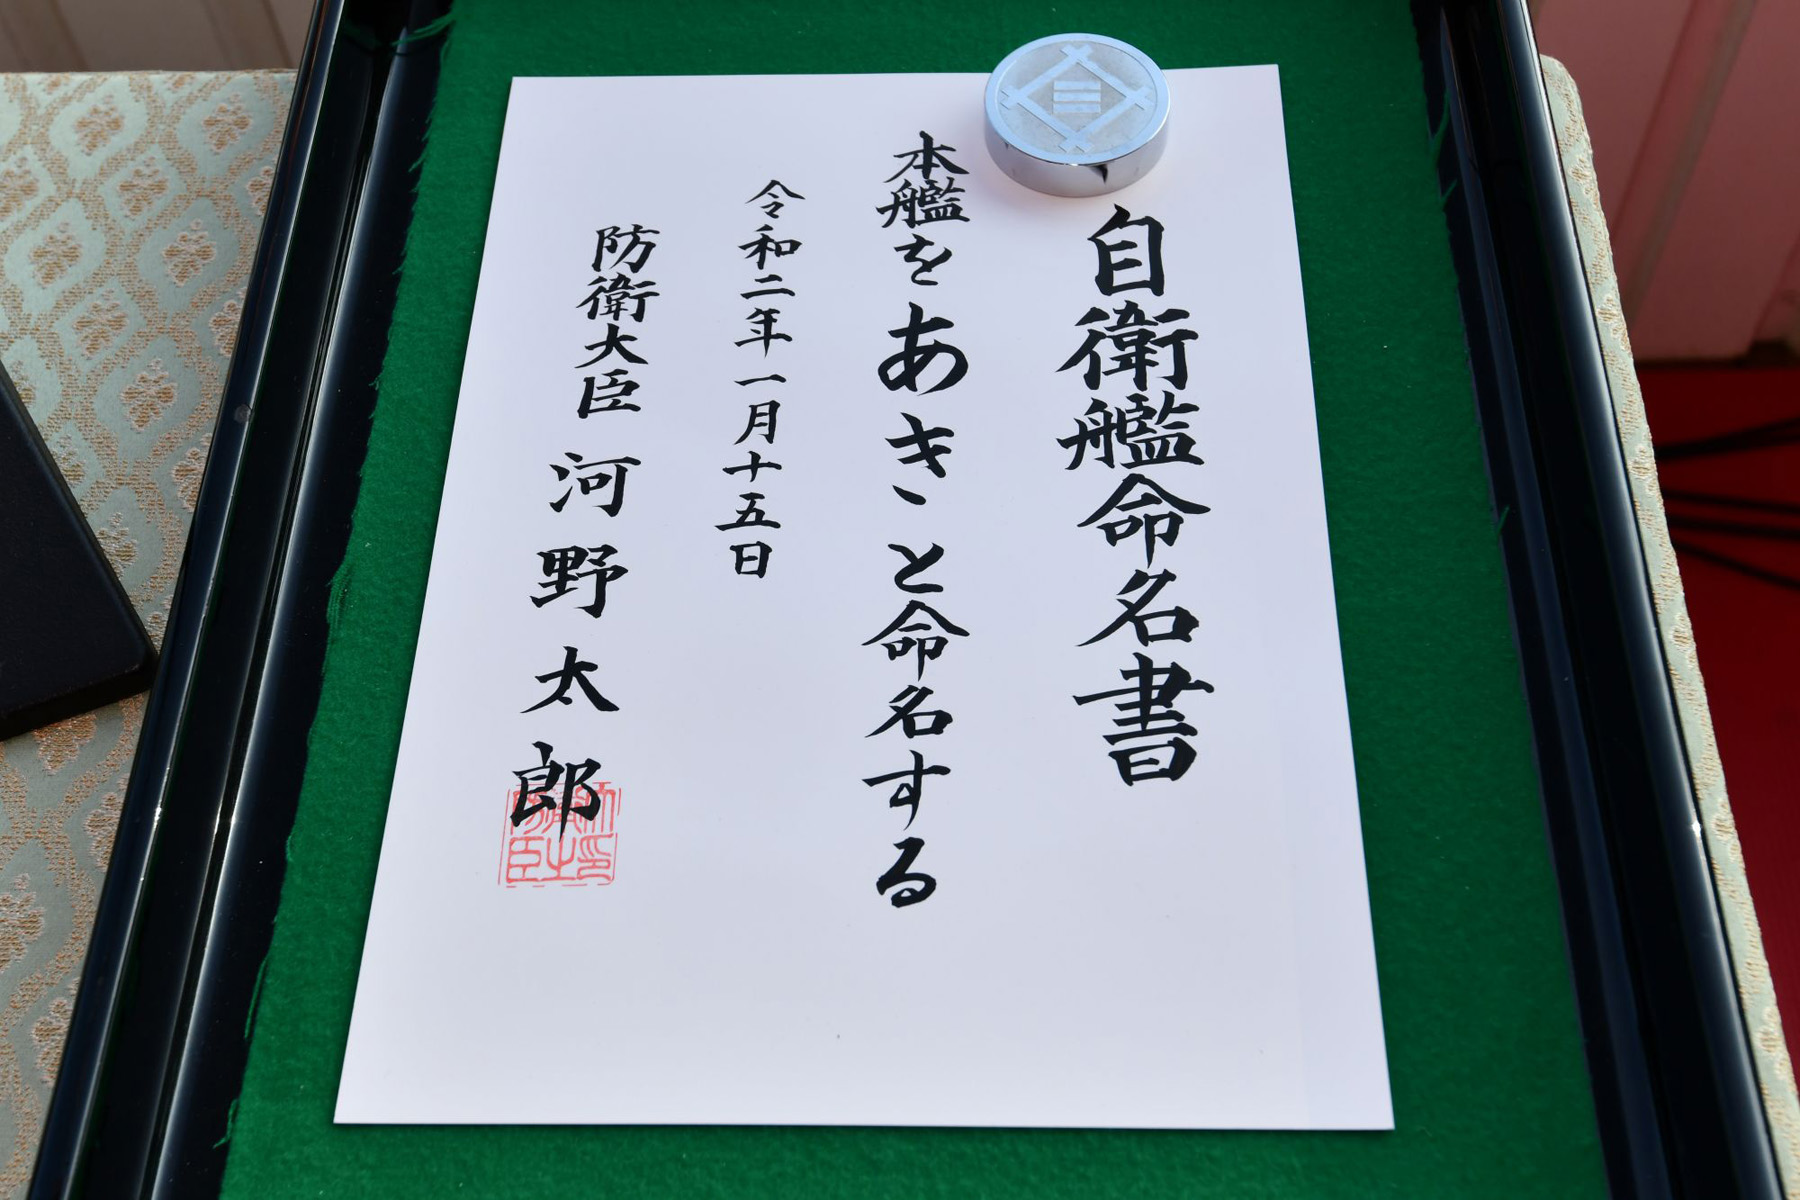 自衛艦命名書
本艦をあきゝと命名する
令和二年一月十五日
防衛大臣 河野太郎
三